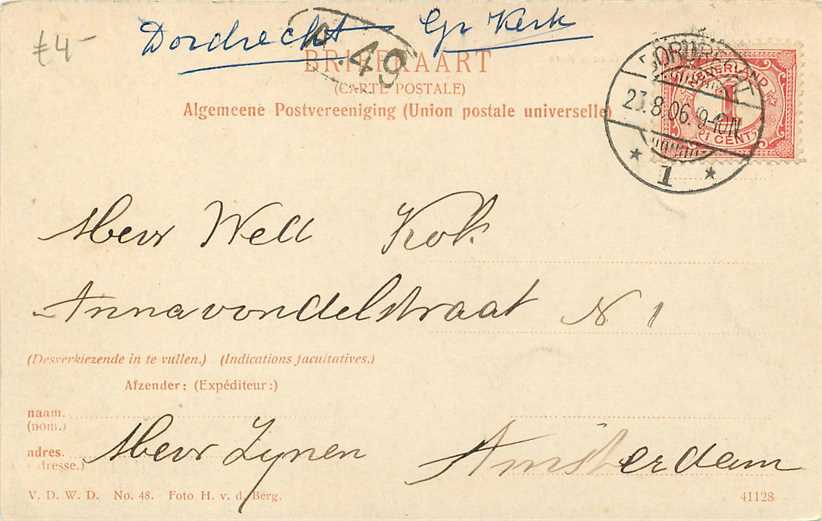 £4-
Dordrecht Gr Kerk
.49
BRIEFKAART
(CARTE POSTALE)
Algemeene Postvereeniging (Union postale universelle)
DORDRECHT
23.8.06. 9-10N
* 1 *
NEDERLAND
1
CENT
Mevr Well Kok
Annavondelstraat N 1
(Desverkiezende in te vullen.) (Indications facultatives.)
Afzender: (Expéditeur:)
naam.
(nom.)
adres. Mevr Zynen Amsterdam
(adresse.)
V. D. W. D. No. 48. Foto H. v. d. Berg. 41128